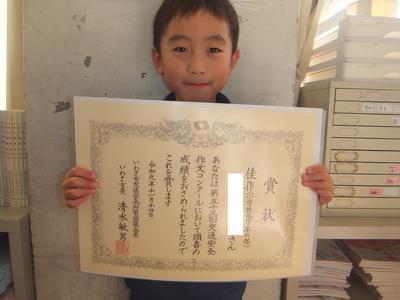 賞状
佳作
さん
あなたは第五十三回交通安全
作文コンクールにおいて頭書の
成績をおさめられましたので
これを賞します
令和元年十一月十四日
いわき市交通安全対策協議会長
いわき市長 清水敏男